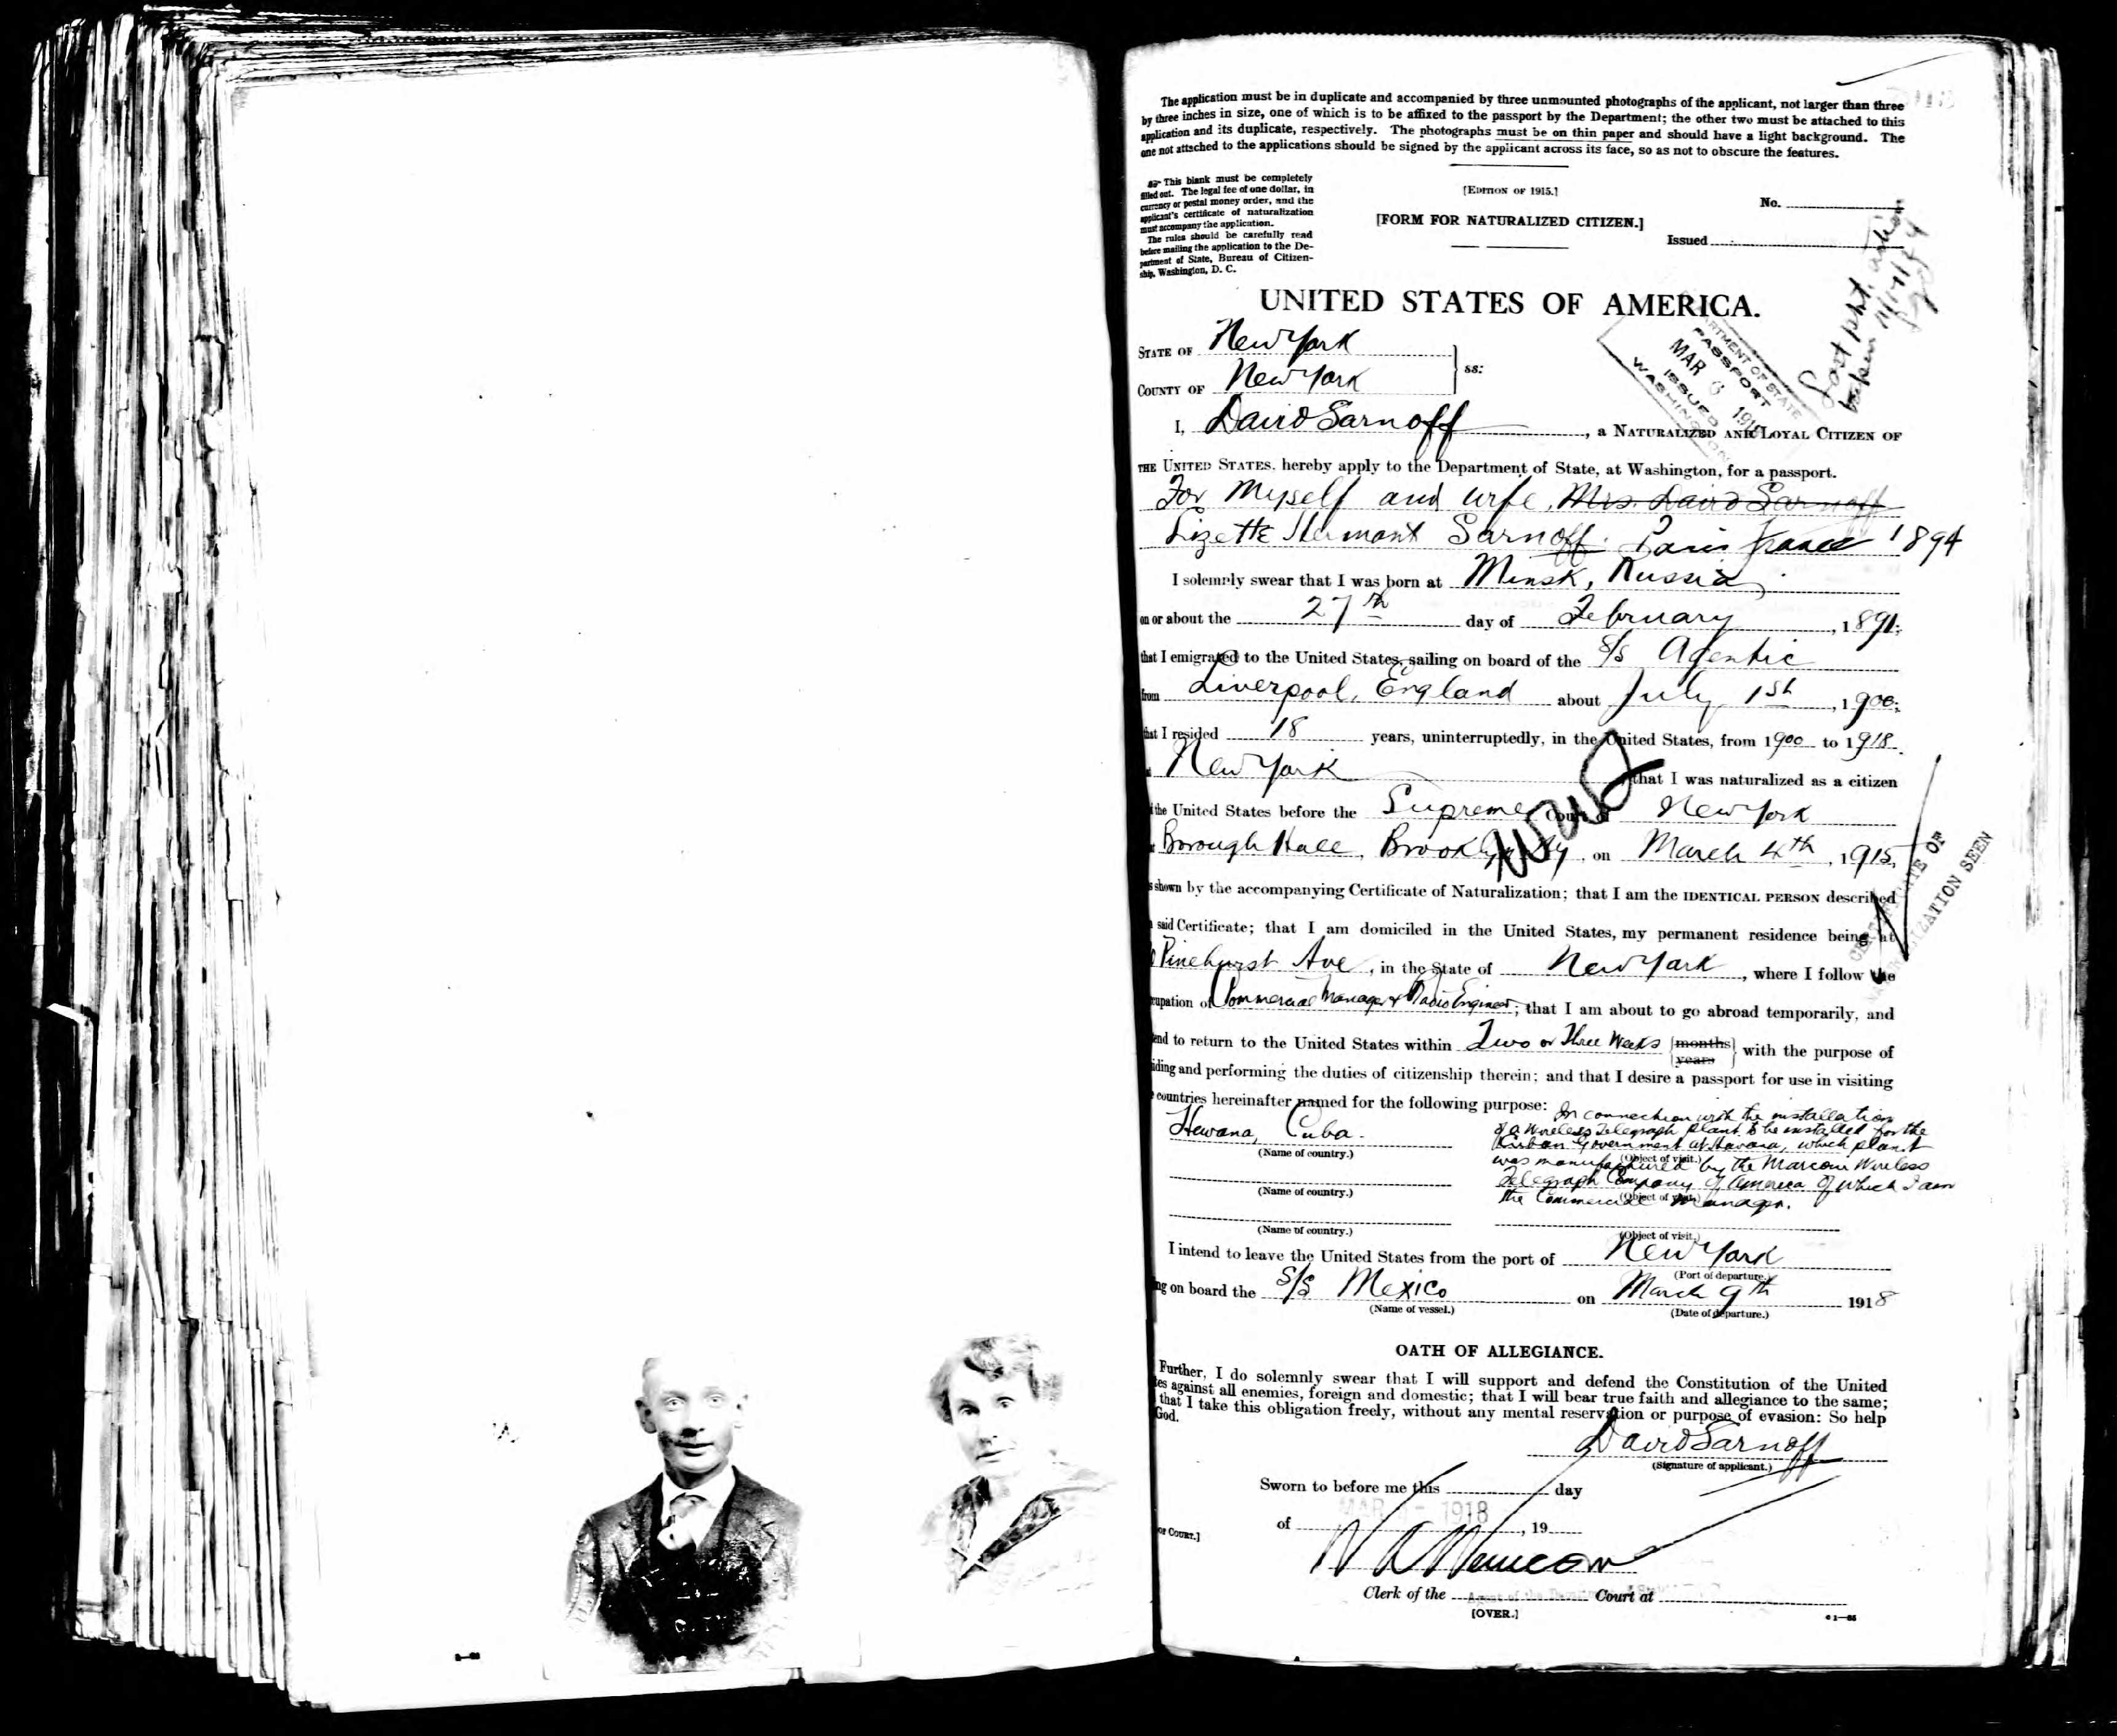 The application must be in duplicate and accompanied by three unmounted photographs of the applicant, not larger than three
by three inches in size, one of which is to be affixed to the passport by the Department; the other two must be attached to this
application and its duplicate, respectively. The photographs must be on thin paper and should have a light background. The
one not attached to the applications should be signed by the applicant across its face, so as not to obscure the features.
This blank must be completely
filled out. The legal fee of one dollar, in
currency or postal money order, and the
applicant's certificate of naturalization
must accompany the application.
The rules should be carefully read
before mailing the application to the De-
partment of State, Bureau of Citizen-
ship, Washington, D. C.
[EDITION OF 1915.]
[FORM FOR NATURALIZED CITIZEN.]
No.
Issued
UNITED STATES OF AMERICA.
DEPARTMENT OF STATE
PASSPORT
MAR 6 1918
ISSUED
WASHINGTON
STATE OF New York
COUNTY OF New York
ss:
I, David Sarnoff, a NATURALIZED AND LOYAL CITIZEN OF
THE UNITED STATES, hereby apply to the Department of State, at Washington, for a passport.
For Myself and wife, Mrs. David Sarnoff
Lizette Hermant Sarnoff. Paris France 1894
I solemnly swear that I was born at Minsk, Russia
on or about the 27th day of February, 1891;
that I emigrated to the United States, sailing on board of the S/S Agentic
from Liverpool, England about July 1st, 1900;
that I resided 18 years, uninterruptedly, in the United States, from 1900 to 1918
New York that I was naturalized as a citizen
the United States before the Supreme Court of New York
Borough Hall, Brooklyn NY, on March 4th, 1915,
shown by the accompanying Certificate of Naturalization; that I am the IDENTICAL PERSON described
said Certificate; that I am domiciled in the United States, my permanent residence being at
CERTIFICATE OF
NATURALIZATION SEEN
Pinehurst Ave, in the State of New York, where I follow the
cupation of Commercial Manager & Radio Engineer; that I am about to go abroad temporarily, and
end to return to the United States within Two or Three Weeks {months years} with the purpose of
iding and performing the duties of citizenship therein; and that I desire a passport for use in visiting
countries hereinafter named for the following purpose:
Havana, Cuba.
(Name of country.)
(Name of country.)
(Name of country.)
In connection with the installation
of a Wireless Telegraph plant to be installed for the
Cuban Government at Havana, which plant
(Object of visit.)
was manufactured by the Marconi Wireless
Telegraph Company of America of which I am
(Object of visit.)
the Commercial Manager.
(Object of visit.)
I intend to leave the United States from the port of New York
(Port of departure.)
ng on board the S/S Mexico on March 9th 1918
(Name of vessel.) (Date of departure.)
OATH OF ALLEGIANCE.
Further, I do solemnly swear that I will support and defend the Constitution of the United
es against all enemies, foreign and domestic; that I will bear true faith and allegiance to the same;
that I take this obligation freely, without any mental reservation or purpose of evasion: So help
God.
David Sarnoff
(Signature of applicant.)
Sworn to before me this day
MAR 1918
of , 19
OF COURT.]
Clerk of the Court at
[OVER.]